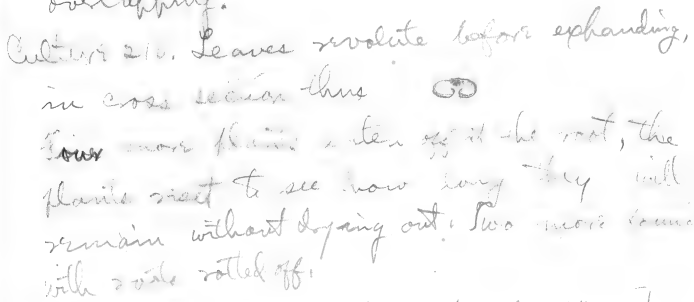 overlapping.
Culture 210. Leaves revolute before expanding,
in cross section thus
Four more plants eaten off at the root, the
plants reset to see how long they will
remain without drying out. Two more found
with roots rotted off.